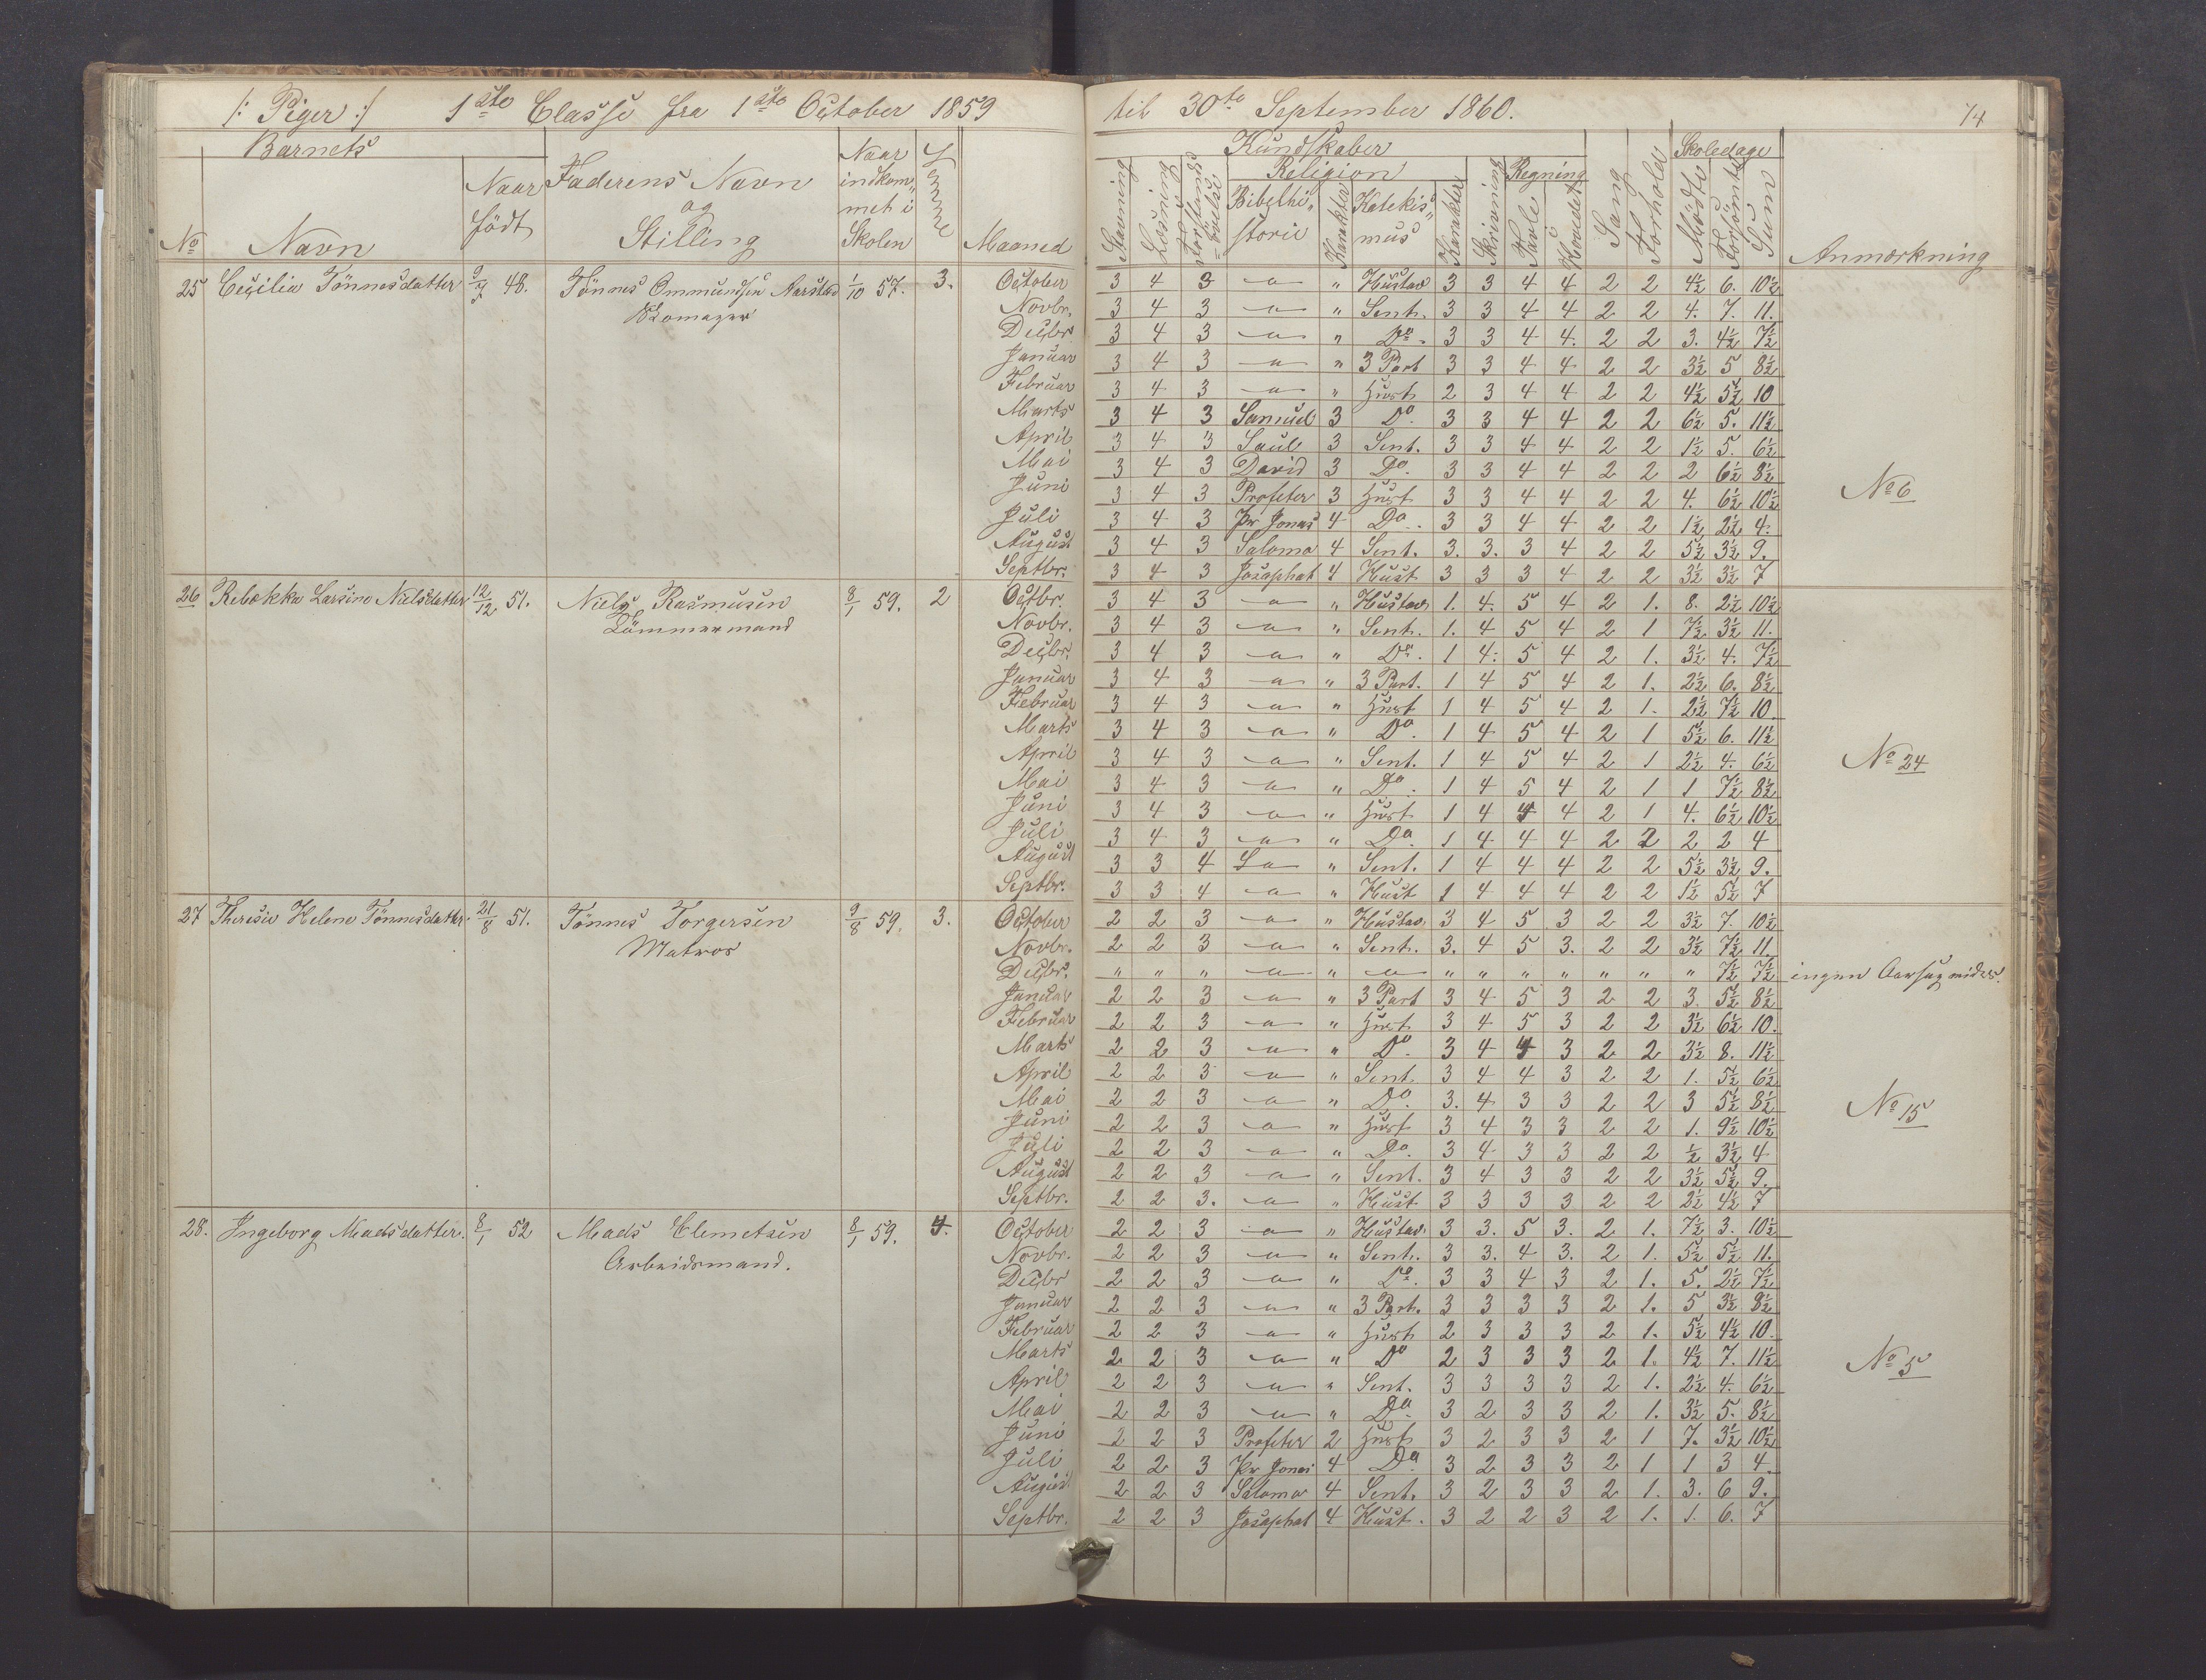 /: Piger :/ 1ste Classe fra 1ste October 1859 til 30te September 1860. 74
Barnets
No Navn Naar födt Faderens Navn og Stilling Naar indkommet i Skolen Evne Maaned
Kundskaber
Religion Regning Skoledage
Stavning Læsning Forstands-övelse Bibelhistorie Karakter Katekismus Karakter Skrivning Tavle Hovedet Sang Forhold Mödte Forsömte Sum Anmærkning
25 Cecilia Tönnesdatter 9/7 48. Tönnes Ommundsen Aarstad 1/10 57. 3. October 3 4 3 " " Hustav 3 3 4 4 2 2 4½ 6. 10½
Novbr. 3 4 3 " " Sent. 3 3 4 4 2 2 4. 7. 11.
Decbr. 3 4 3 " " Do. 3 3 4 4. 2 2 3. 4½ 7½
Januar 3 4 3 " " 3 Part 3 3 4 4 2 2 3½ 5 8½
Februar 3 4 3 " " Hust 2 3 4 4 2 2 4½ 5½ 10
Marts 3 4 3 Samuel 3 Do. 3 3 4 4 2 2 6½ 5. 11½
April 3 4 3 Saul 3 Sent. 3 3 4 4 2 2 1½ 5. 6½
Mai 3 4 3 David 3 Do. 3 3 4 4 2 2 2 6½ 8½
Juni 3 4 3 Profeter 3 Hust 3 3 4 4 2 2 4. 6½ 10½ No 6
Juli 3 4 3 Pr Jonas 4 Do. 3 3 4 4 2 2 1½ 2½ 4.
August 3 4 3 Salomo 4 Sent. 3. 3. 3 4 2 2 5½ 3½ 9.
Septbr. 3 4 3 Josaphat 4 Hust 3 3 3 4 2 2 3½ 3½ 7
26 Rebekka Larsine Nielsdatter 12/12 51. Niels Rasmusen Tömmermand 8/1 59. 2 Octbr. 3 4 3 " " Hustav 1. 4. 5 4 2 1. 8. 2½ 10½
Novbr. 3 4 3 " " Sent. 1. 4 5 4 2 1 7½ 3½ 11.
Decbr. 3 4 3 " " Do. 1 4. 5 4 2 1. 3½ 4. 7½
Januar 3 4 3 " " 3 Part. 1 4 5 4 2 1. 2½ 6. 8½
Februar 3 4 3 " " Hust 1 4 5 4 2 1. 2½ 7½ 10
Marts 3 4 3 " " Do. 1 4 5 4 2 1 5½ 6. 11½
April 3 4 3 " " Sent. 1 4 5 4 2 1 2½ 4. 6½ No 24
Mai 3 4 3 " " Do. 1 4 5 4 2 1 1 7½ 8½
Juni 3 4 3 " " Hust 1 4 4 4 2 1 4. 6½ 10½
Juli 3 4 3 " " Do. 1 4 4 4 2 2 2 2 4
August 3 3 4 " " Sent. 1 4 4 4 2 2 5½ 3½ 9.
Septbr. 3 3 4 " " Hust 1 4 4 4 2 2 1½ 5½ 7
27 Theresie Helene Tönnesdatter. 21/8 51. Tönnes Torgersen Matros 9/8 59. 3. October 2 2 3 " " Hustav 3 4 5 3 2 2 3½ 7. 10½
Novbr. 2 2 3 " " Sent. 3. 4 5 3. 2 2 3½ 7½ 11.
Decbr. " " " " " " " " " " " " " 7½ 7½ ingen
Januar 2 2 3 " " 3 Part 3 4 5 3 2 2 3. 5½ 8½
Februar 2 2 3 " " Hust 3 4 5 3 2 2 3½ 6½ 10.
Marts 2 2 3 " " Do. 3 4 4 3 2 2 3½ 8. 11½
April 2 2 3 " " Sent. 3 4 4 3 2 2 1. 5½ 6½
Mai 2 2 3 " " Do. 3. 4 3 3 2 2 3 5½ 8½ No 15
Juni 2 2 3 " " Hust 3 4 3 3 2 2 1. 9½ 10½
Juli 2 2 3 " " Do. 3 4 3 3 2 2 ½ 3½ 4
August 2 2 3 " " Sent. 3 4 3 3 2 2 3½ 5½ 9.
Septbr. 2 2 3. " " Hust 3 3 3 3 2 2 2½ 4½ 7
28. Ingeborg Madsdatter. 8/1 52 Mads Clemetsen Arbeidsmand. 8/1 59. 4. October 2 2 3 " " Hustav 3 3. 5 3. 2 1. 7½ 3. 10½
Novbr. 2 2 3 " " Sent. 3 3. 4 3. 2 1. 5½ 5½ 11.
Decbr 2 2 3 " " Do. 3 3 4 3 2 1. 5. 2½ 7½
Januar 2 2 3 " " 3 Part. 3 3 3 3 2 1. 5 3½ 8½
Februar 2 2 3 " " Hust 2 3 3 3 2 1. 5½ 4½ 10.
Marts 2 2 3 " " Do 2 3 3 3 2 1. 4½ 7. 11½ No 5
April 2 2 3 " " Sent. 3 3 3 3 2 1. 2½ 4. 6½
Mai 2 2 3 " " Do. 3 2 3 3 2 1. 3½ 5. 8½
Juni 2 2 3 Profeter 2 Hust 3 2 3 3 2 1 7. 3½ 10½
Juli 2 2 3 Pr Jonas 4 Do. 3 2 3 3 2 1 1 3 4.
August 2 2 3 Salomo 4 Sent. 3 2 3 3 2 1. 3. 6 9.
Septbr. 2 2 3 Josaphat 4 Hust. 3 2 2 3 2 1. 1. 6. 7